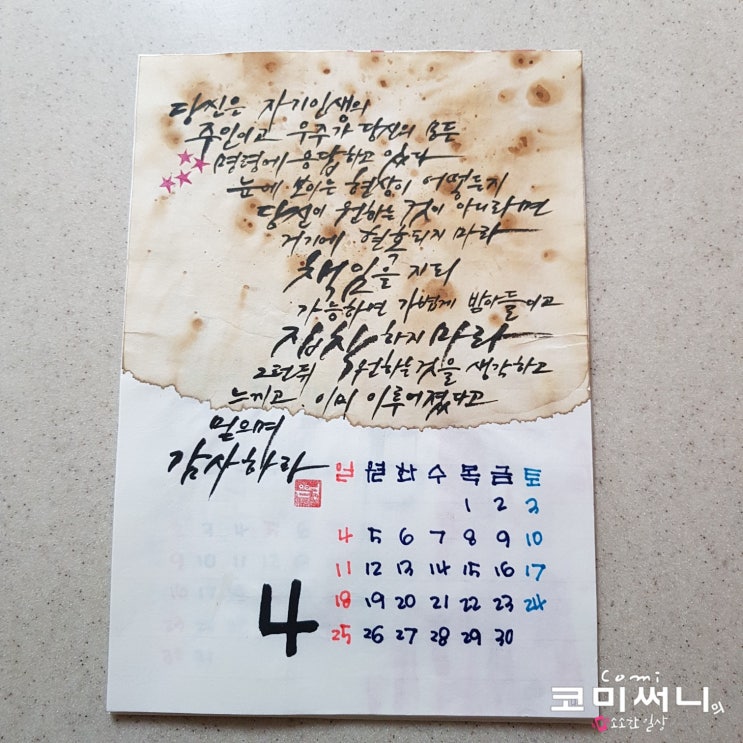 당신은 자기인생의
주인이고 우주가 당신의 모든
명령에 응답하고 있다
눈에 보이는 현상이 어떻든지
당신이 원하는 것이 아니라면
거기에 현혹되지 마라
책임을 지되
가능하면 가볍게 받아들이고
집착하지 마라
그런뒤 원하는것을 생각하고
느끼고 이미 이루어졌다고
믿으며
감사하라
일 월 화 수 목 금 토
1 2 3
4 5 6 7 8 9 10
11 12 13 14 15 16 17
18 19 20 21 22 23 24
25 26 27 28 29 30
4
Comi
코미써니의
소소한 일상